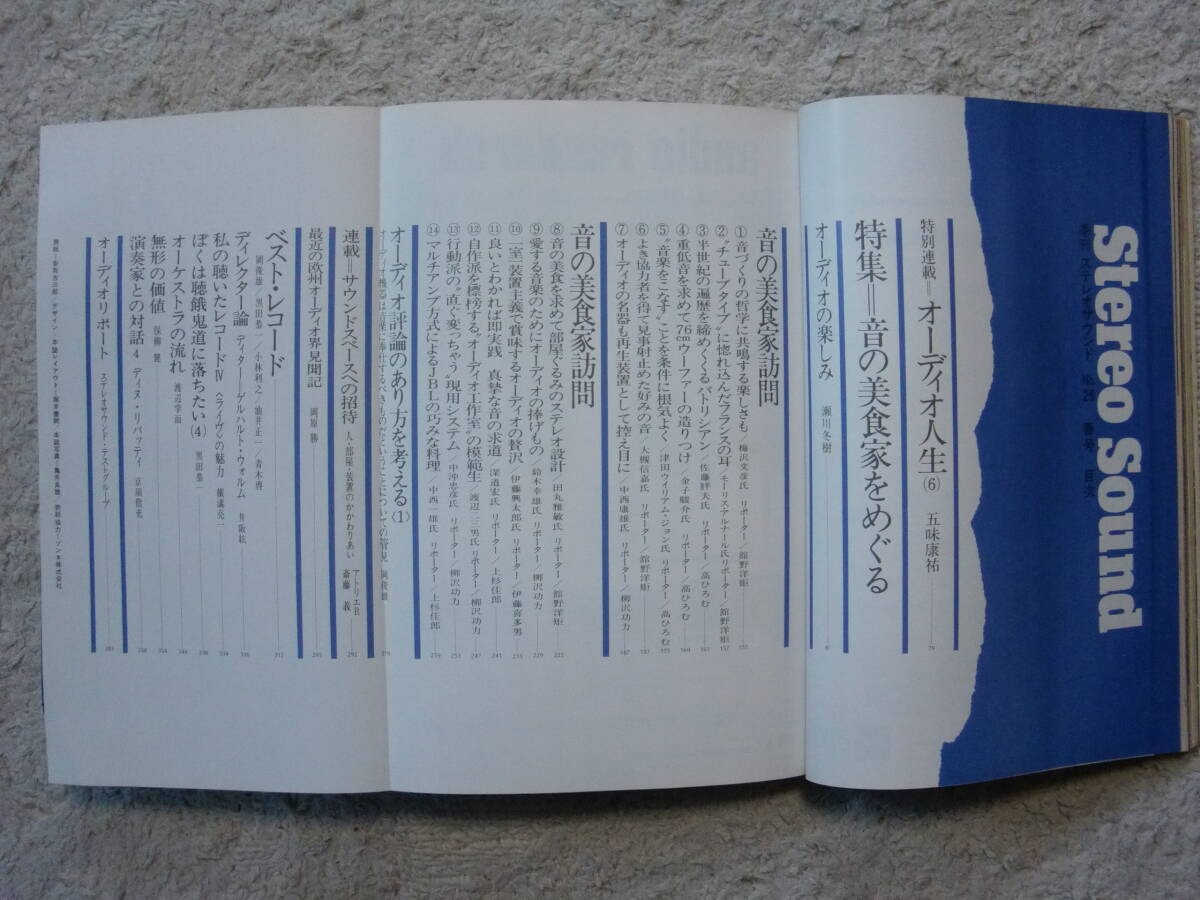 Stereo Sound
季刊ステレオサウンド No.26 春号 目次
特別連載＝オーディオ人生(6) 五味康祐 79
特集＝音の美食家をめぐる
オーディオの楽しみ 瀬川冬樹
音の美食家訪問
①音づくりの哲学に共鳴する楽しさも／梅沢文彦氏 リポーター／舘野洋矩
②“チューブタイプ”に惚れ込んだフランスの耳 モーリス・アルナール氏 リポーター／舘野洋矩 157
③半世紀の遍歴を締めくくるパトリシアン／佐藤 氏 リポーター／高ひろむ
④重低音を求めて76cmウーファーの造りつけ／金子駿介氏 リポーター／高ひろむ
⑤“音楽をこなす”ことを条件に根気よく／津田ウイリアム・ジョン氏 リポーター／高ひろむ 175
⑥よき協力者を得て見事射止めた好みの音／大槻信嘉氏 リポーター／舘野洋矩
⑦オーディオの名器も再生装置として控え目に／中西康雄氏 リポーター／柳沢功力 187
音の美食家訪問
⑧音の美食を求めて部屋ぐるみのステレオ設計／田丸雅敏氏 リポーター／舘野洋矩
⑨愛する音楽のためにオーディオの捧げもの 鈴木幸雄氏 リポーター／柳沢功力 229
⑩“一室一装置主義”で賞味するオーディオの贅沢／伊藤興太郎氏 リポーター／伊藤喜多男 235
⑪良いとわかれば即実践 真摯な音の求道／深道宏氏 リポーター／上杉佳郎 241
⑫自作派を標榜する“オーディオ工作室”の模範生／渡辺二三男氏 リポーター／柳沢功力 247
⑬行動派の“直ぐ変っちゃう”現用システム 中沖忠彦氏 リポーター／柳沢功力 253
⑭マルチアンプ方式によるJBLの巧みな料理／中西一雄氏 リポーター／上杉佳郎 259
オーディオ評論のあり方を考える〈1〉
岡俊雄 279
連載＝サウンドスペースへの招待 人・部屋・装置のかかわりあい アトリエR 斎藤義 291
最近の欧州オーディオ界見聞記 岡原勝 295
ベスト・レコード 312
岡俊雄／黒田恭一／小林利之／油井正一／青木啓
ディレクター論 ディーター＝ゲルハルト・ウォルム 井阪紘
私の聴いたレコードⅣ 〈ライヴ〉の魅力
ぼくは聴餓鬼道に落ちたい(4) 黒田恭一
オーケストラの流れ 渡辺学而
無形の価値 保柳健
演奏家との対話4 ディヌ・リパッティ
オーディオリポート ステレオサウンド・テストグループ